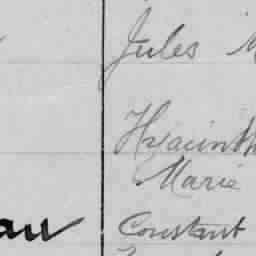 Jules M
Hyacinth
Marie
au Constant